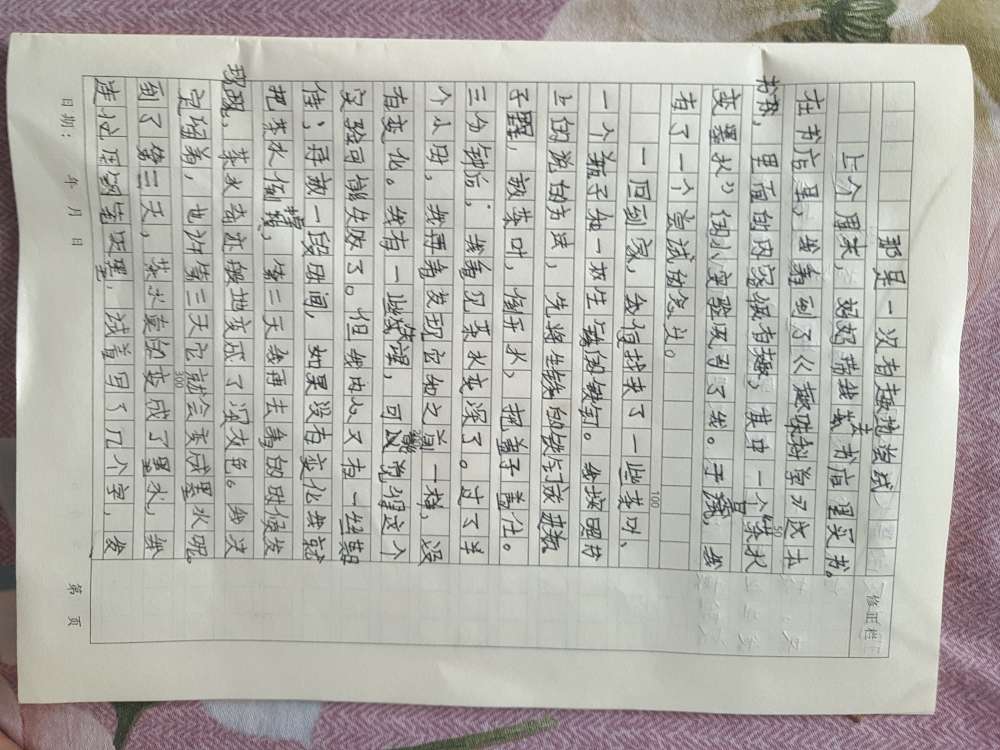 那是一次有趣地尝试
修正栏
上个周末,妈妈带我去书店里买书。
在书店里,我看到了《趣味科学》这本
书,里面的内容很有趣,其中一个“茶水
变墨水”的小实验吸引了我。于是,我
有了一个尝试的念头。
一回到家,我便找来了一些茶叶、
一个瓶子和一枚生锈的铁钉。我按照书
上的说的方法,先将生锈的铁钉放进瓶
子里,放茶叶,倒开水,把盖子盖住。
三分钟后,我看见茶水变深了。过了半
个小时,我再看发现它如之前一样,没
有变化。我有一些,可以说得这个
实验可能失败了。但我内心又有一丝期
待,再放一段时间,如果没有变化我就
把茶水倒掉,第二天我再去看的时候发
现,茶水奇迹般地变成了深灰色。我决
定留着,也许第三天它就会变成墨水呢。
到了第三天,茶水真的变成了墨水,我
连忙用钢笔吸墨,试着写了几个字,发
50
100
300
日期: 年 月 日
第 页